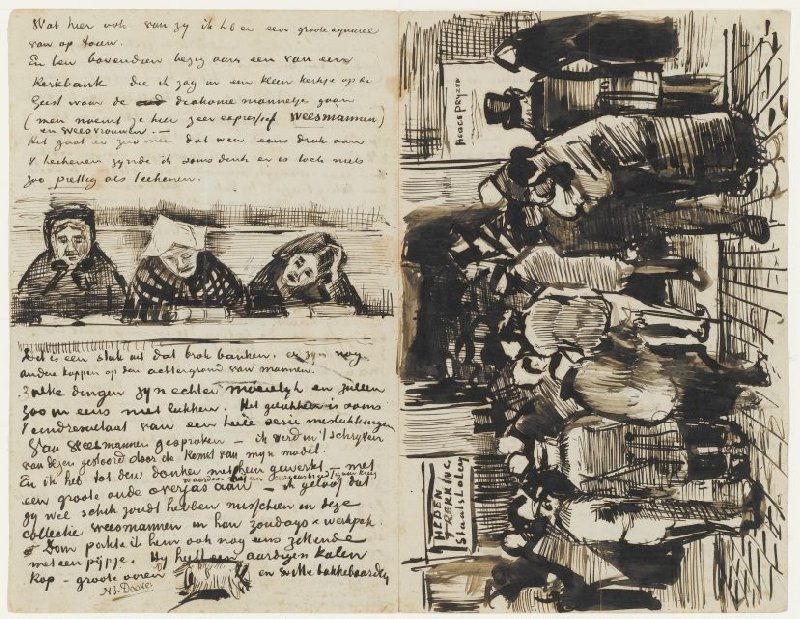 Wat hier ook van zij ik heb een groote aquarel
van op touw.
En ben bovendien bezig aan een van een
Kerkbank die ik zag in een klein kerkje op de
Geest waar de diakonie mannetjes gaan
(men noemt ze hier zeer expressief weesmannen)
en weesvrouwen. –
Het gaat er zoo mee dat weer eens druk aan
't teekenen zijnde ik soms denk er is toch niets
zoo prettig als teekenen.
Dit is een stuk uit dat brok banken. er zijn nog
andere koppen op den achtergrond van mannen.
Zulke dingen zijn echter moeielijk en zullen
zoo in eens niet lukken. Het gelukken is soms
't eindresultaat van een heele serie mislukkingen.
Van weesmannen gesproken – ik werd in 't schrijven
van dezen gestoord door de komst van mijn model.
En ik heb tot den donker met hem gewerkt – met
een groote oude overjas aan – ik geloof dat
gij wel schik zoudt hebben misschien in deze
collectie weesmannen in hun zondags & werkpak.
Dan pakte ik hem ook nog eens zittende
met een pijpje. Hij heeft een aardigen kalen
kop – groote ooren en witte bakkebaarden
N.B. Doove.
HOOGE PRYZEN
HEDEN
TREKKING
Staatsloterij